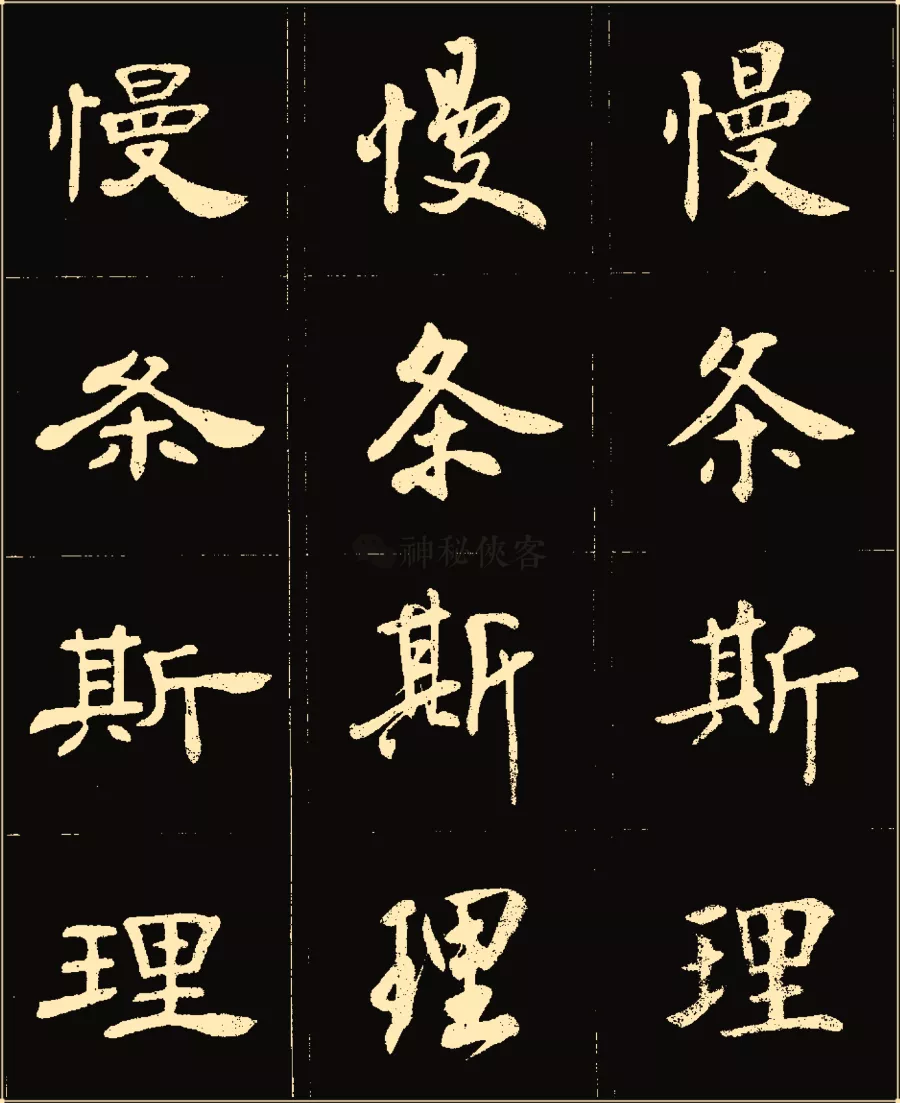 慢 慢 慢
条 条 条
神秘俠客
斯 斯 斯
理 理 理